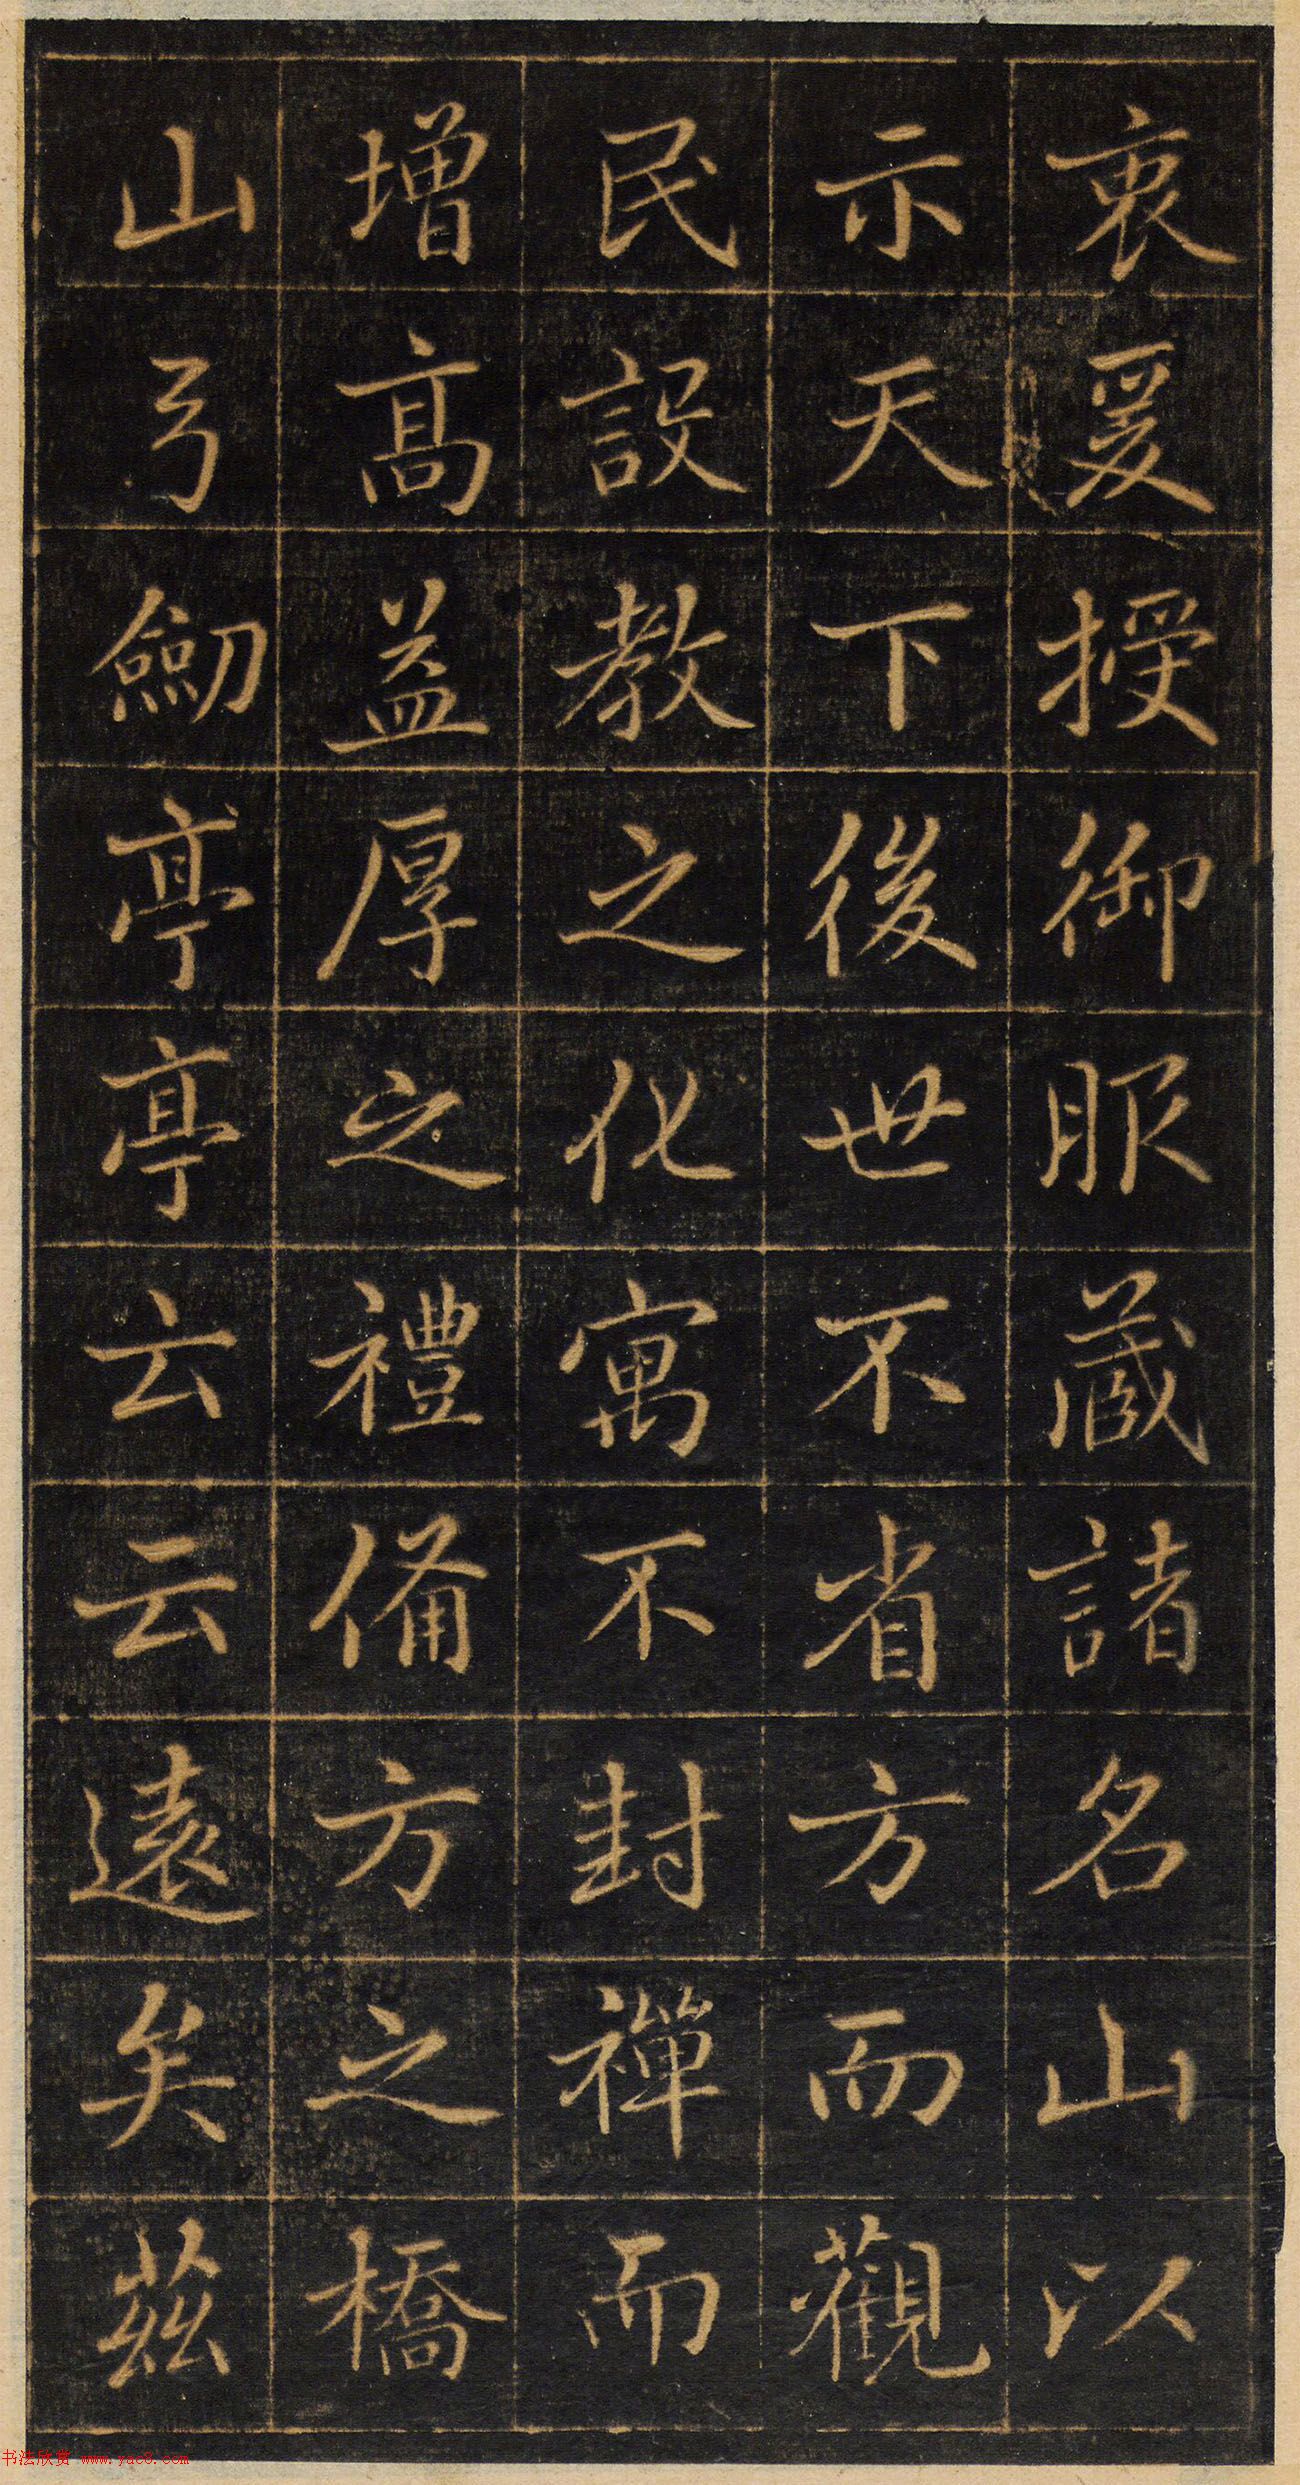 衷爰授御服藏諸名山以
示天下後世不省方而觀
民設教之化寓不封禪而
增高益厚之禮備方之橋
山弓劒亭亭云云遠矣茲
书法欣赏 www.yac8.com